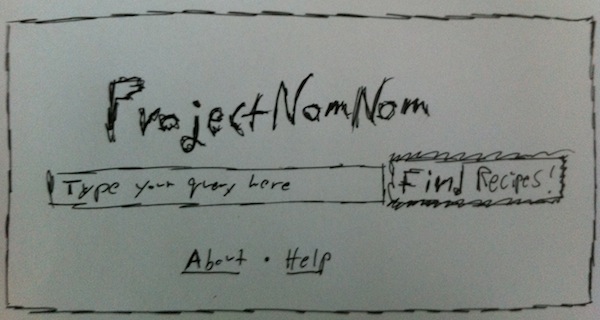 ProjectNomNom
Type your query here
Find Recipes!
About • Help